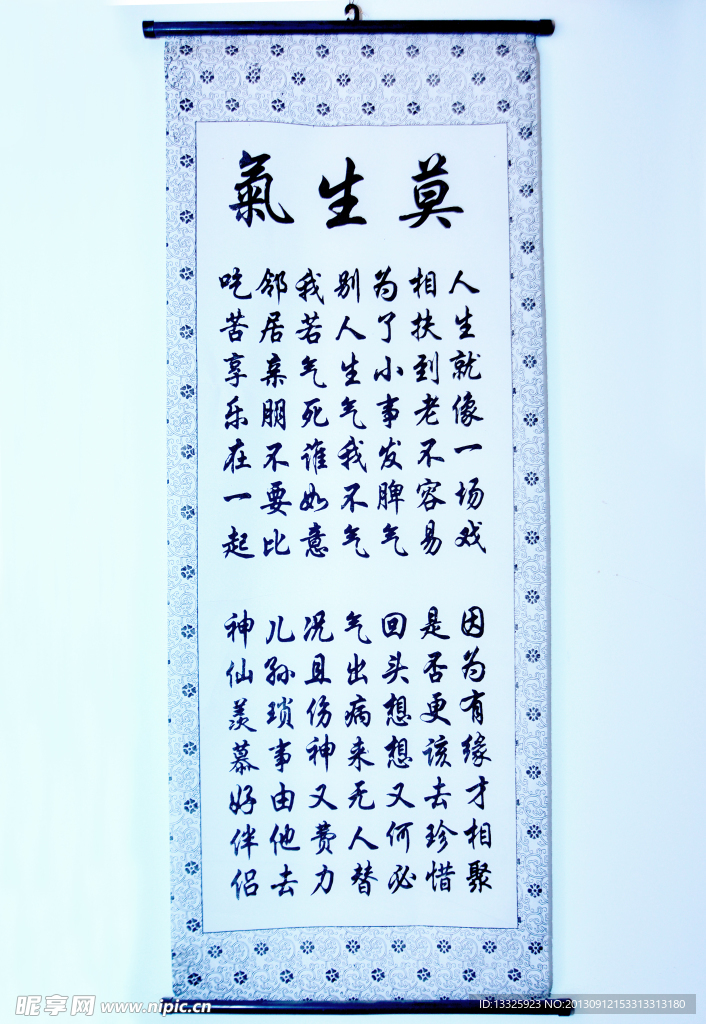 莫生氣
人生就像一场戏
因为有缘才相聚
相扶到老不容易
是否更该去珍惜
为了小事发脾气
回头想想又何必
别人生气我不气
气出病来无人替
我若气死谁如意
况且伤神又费力
邻居亲朋不要比
儿孙琐事由他去
吃苦享乐在一起
神仙羡慕好伴侣
昵享网 www.nipic.cn
ID:13325923 NO:20130912153313313180